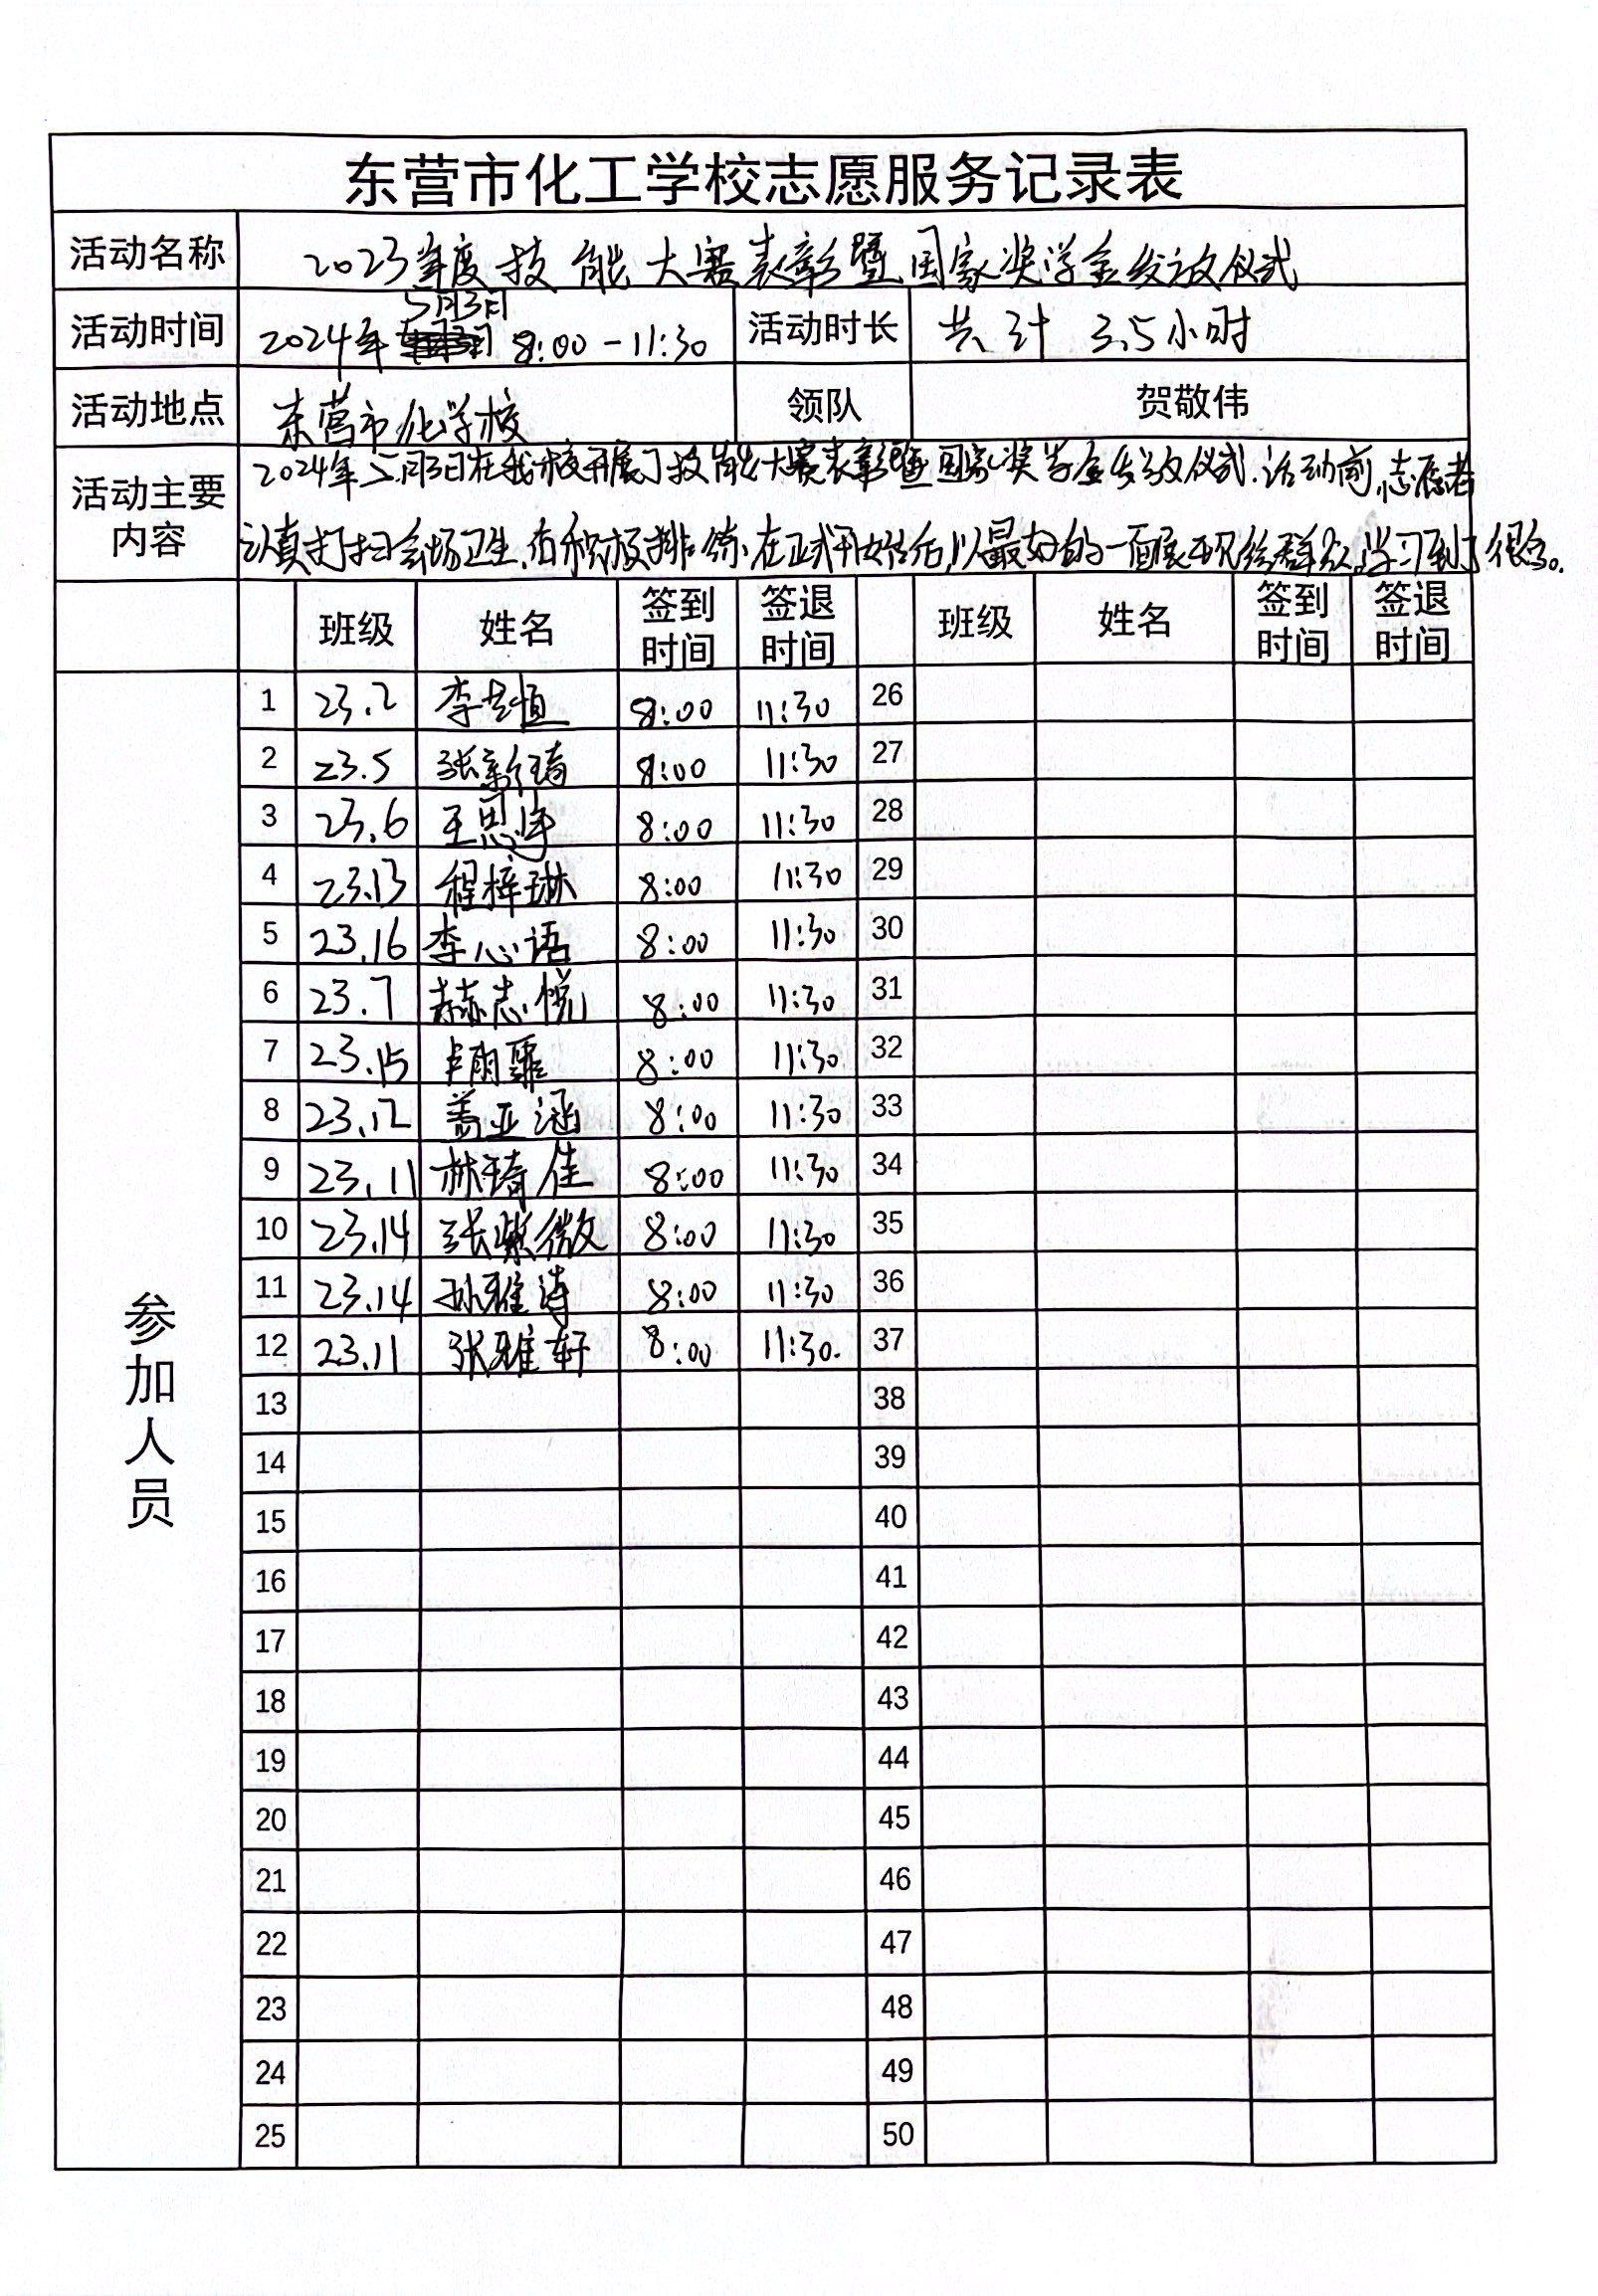 东营市化工学校志愿服务记录表
活动名称 2023年度技能大赛表彰暨国家奖学金发放仪式
活动时间 2024年5月3日 8:00-11:30 活动时长 共计 3.5小时
活动地点 东营市化学校 领队 贺敬伟
活动主要内容 2024年5月3日在我校开展了技能大赛表彰暨国家奖学金发放仪式.活动前,志愿者
认真打扫会场卫生,布积极排练,在正式开始后,以最好的一面展现给群众,学习到了很多.
班级 姓名 签到时间 签退时间 班级 姓名 签到时间 签退时间
参加人员
1 23.2 李 8:00 11:30 26
2 23.5 张新琦 8:00 11:30 27
3 23.6 王思宇 8:00 11:30 28
4 23.13 程梓琳 8:00 11:30 29
5 23.16 李心语 8:00 11:30 30
6 23.7 赫志悦 8:00 11:30 31
7 23.15 卢雨霏 8:00 11:30 32
8 23.12 盖亚涵 8:00 11:30 33
9 23.11 林琦佳 8:00 11:30 34
10 23.14 张紫微 8:00 11:30 35
11 23.14 孙雅涛 8:00 11:30 36
12 23.11 张雅轩 8:00 11:30. 37
13 38
14 39
15 40
16 41
17 42
18 43
19 44
20 45
21 46
22 47
23 48
24 49
25 50